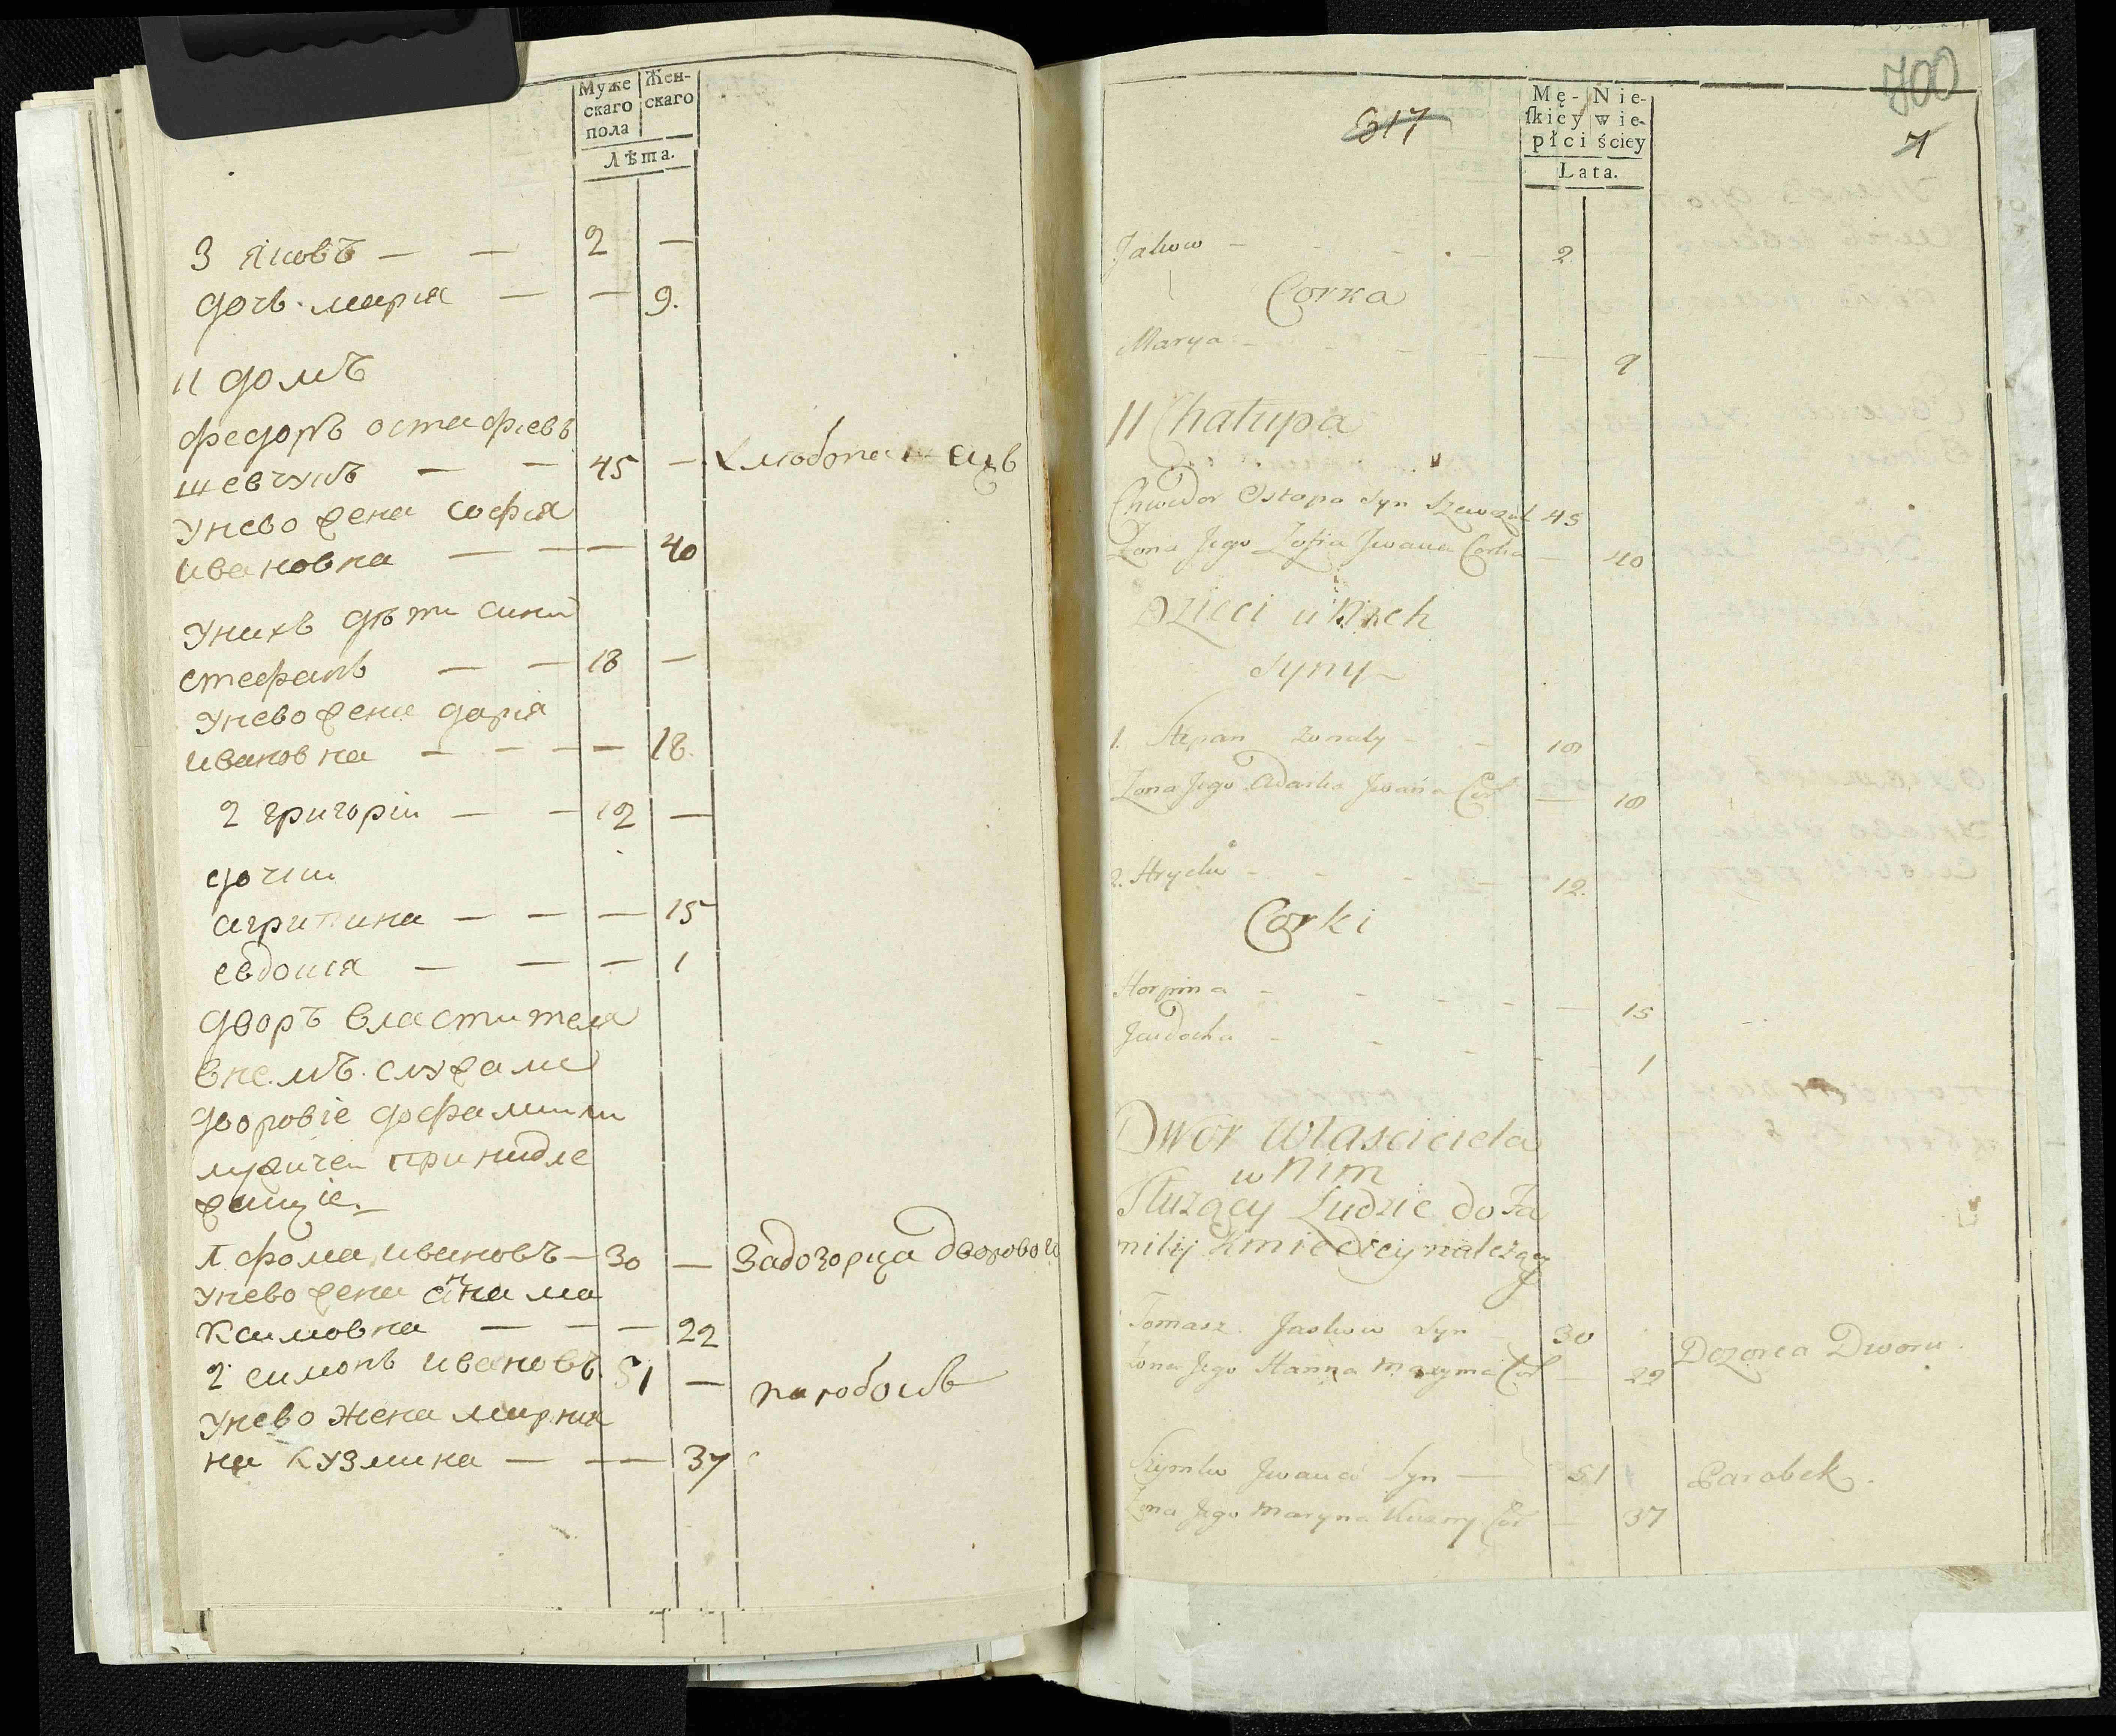 Муже
скаго
пола
Жен-
скаго
Лѣта.
3 яковъ — — 2 —
дочь марія — — 9.
11 домъ
федоръ остафіевъ
шевчукъ — — 45 —
унево жена софія
ивановна — — — 40
унихъ дѣти сини
стефанъ — — 18 —
унево жена дарія
ивановна — — — — 18.
2 григорій — — 12 —
дочки
агрипина — — — 15
евдокія — — — 1
дворъ властителя
внемъ служали
дворовіе дофамиліи
мужичей принадле
жащіе.
1 фома ивановъ — 30 — Задозорца дворового
унево жена анна ма
ксимовна — — — 22
2 симонъ ивановъ 51 — паробокъ
унево жена марія
на кузмина — — — 37
700
317
7
Mę-
skiey
płci
Nie-
wie-
ściey
Lata.
Jakow — 2
Corka
Marya — 9
11 Chałupa
Chwedor Ostapa Syn Szewczuk 45
Żona Jego Zofia Jwana Corka — 40
Dzieci u Nich
Syny
1. Stepan Zonaty — 18
Żona Jego Adarka Jwana Cor — 18
2. Hryćko — 12.
Corki
Horpina — 15
Jewdocha — 1
Dwor Własciciela
w Nim
Służący Ludzie do Fa
milij Kmiecicy należący
Tomasz Jaskow Syn 30 Dozorca Dworu.
Żona Jego Hanna Maxyma Cor — 22
Szymko Jwana Syn — 51 Parobek.
Żona Jego Maryna Kuzmy Cor — 37